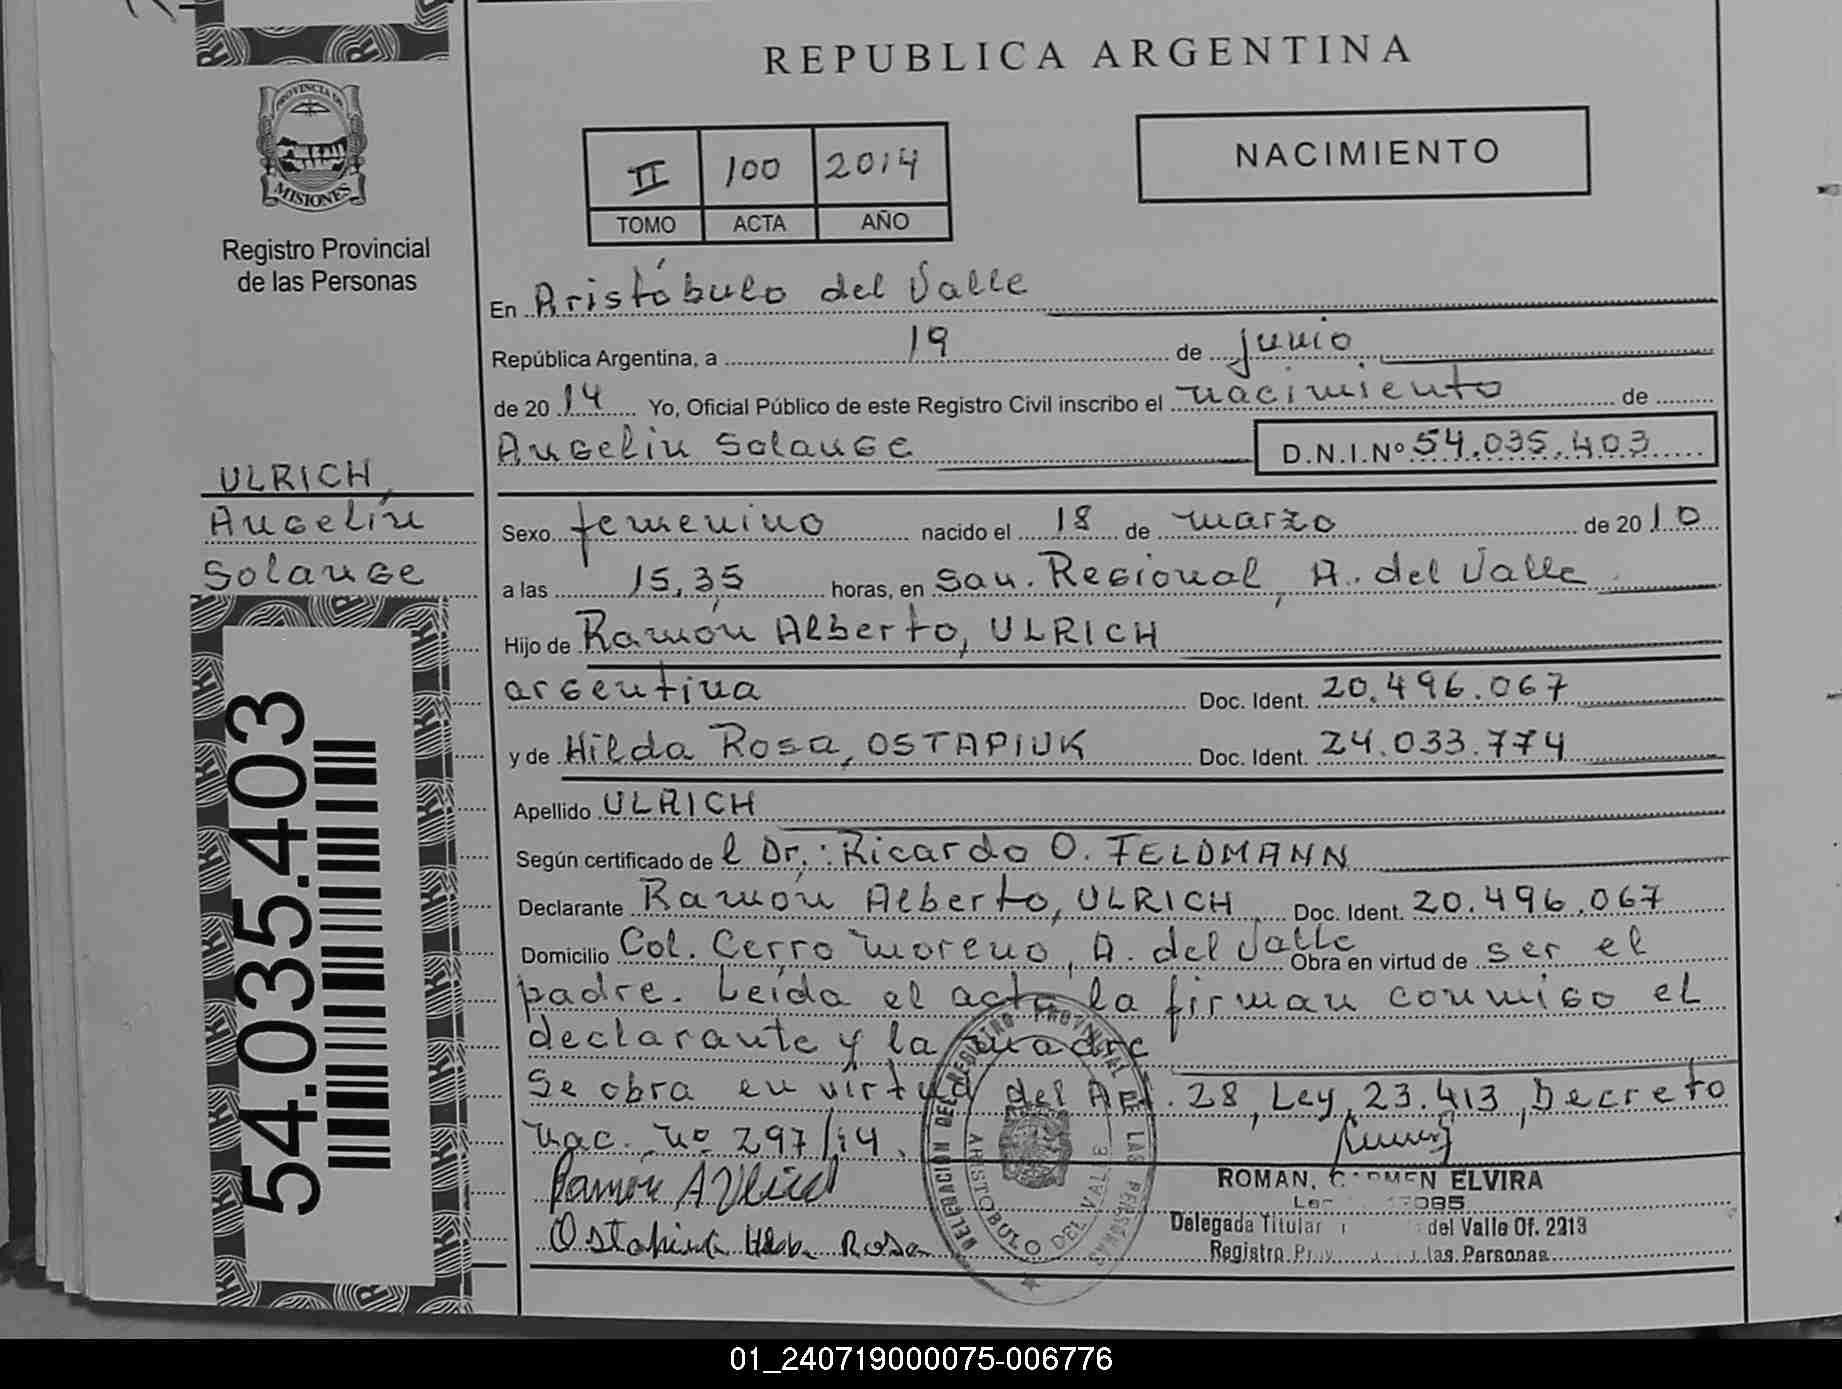 REPUBLICA ARGENTINA
PROVINCIA DE
MISIONES
Registro Provincial
de las Personas
II 100 2014
TOMO ACTA AÑO
NACIMIENTO
En Aristóbulo del Valle
República Argentina, a 19 de junio
de 2014 Yo, Oficial Público de este Registro Civil inscribo el nacimiento de
Angelin Solange D.N.I.Nº 54.035.403
ULRICH,
Angelín
Solange
54.035.403
Sexo femenino nacido el 18 de marzo de 2010
a las 15,35 horas, en San. Regional, A. del Valle
Hijo de Ramón Alberto, ULRICH
argentina Doc. Ident. 20.496.067
y de Hilda Rosa, OSTAPIUK Doc. Ident. 24.033.774
Apellido ULRICH
Según certificado de l Dr.: Ricardo O. FELDMANN
Declarante Ramón Alberto, ULRICH Doc. Ident. 20.496.067
Domicilio Col. Cerro Moreno, A. del Valle Obra en virtud de ser el
padre. Leída el acta la firman conmigo el
declarante y la madre
Se obra en virtud del Art. 28, Ley 23.413, Decreto
Nac. Nº 297/14.
Ramón A Ulrich
Ostapiuk Hilda Rosa
DELEGACION DEL REGISTRO PROVINCIAL DE LAS PERSONAS
ARISTOBULO DEL VALLE
ROMAN, CARMEN ELVIRA
085
Delegada Titular del Valle Of. 2213
Registro las Personas
01_240719000075-006776